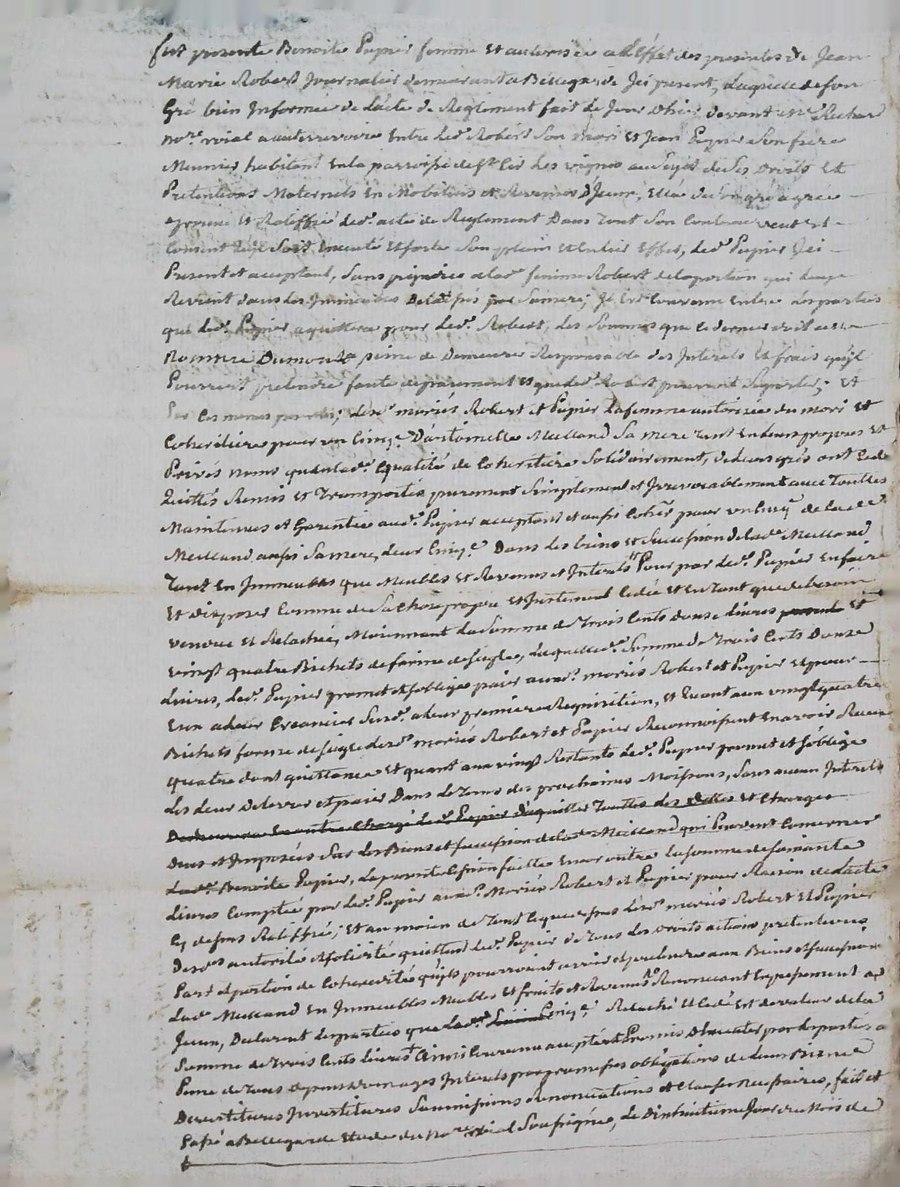 fut presente Benoite Papier femme et autorisée a l'Effet des presentes de Jean
Marie Robert Journalier demeurant a Bellegarde Ici present, Laquelle de son
Gré bien Informée de l'acte de Reglement fait de Jour d'hier devant Me Richard
nore roial a entre led. Robert Son mari et Jean Papier Son frere
Meunier habitant En la paroisse de St Cir les vignes au Sujet de Ses Droits Et
Pretentions Maternels En Mobiliers et Revenus D'Jceux, Elle de son gré agrée
aprouve et Ratiffie led. acte de Reglement Dans tout Son Contenu veut Et
Consent qu'il Soit Executé Et sorte Son plain et Entier Effet, led. Papier Ici
Present et acceptant, Sans prejudice a lad. femme Robert de la portion qui luy
Revient dans les Immeubles par Sa mere; Et Est Convenu Entre les parties
que led. Papier aquittera pour led. Robert, les Sommes que ce dernier doit a
Dumont a peine de Demeurer Responsable des Interets Et frais qu'il
Pourroit pretendre faute de paiement et que led. Robert pourroit Suporter; Et
Par les memes presentes; lesd. mariés Robert et Papier La femme autorisée du mari Et
Coheritiere pour un Cinqe D'antoinette Meilland Sa mere tant En leurs propres Et
Privés noms qu'en lad. Equalité de Coheritiere Solidairement, de leurs grés ont Cedé
Quittés Remis Et Transportés purement Simplement et Irrevocablement avec Touttes
Maintenues et Garenties aud. Papier acceptant et aussi Coher pour un Cinq de lad.
Meilland aussi Sa mere, leur Cinqe Dans les biens et Succession de lad. Meilland
Tant En Immeubles que Meubles Et Revenus et Interets Pour par led. Papier En faire
Et disposer Comme de Sa Chose propre Et Justement Cedée Et En tant que de besoin
vendue Et Relachée, Moiennant La Somme de Trois Cents Douze Livres Et
vingt quatre Bichets de farine de Seigle, Laquelle de Somme de Trois Cents Douze
Livres, led. Papier promet et s'oblige paier auxd. mariés Robert et Papier Et pour
Eux a leur Creancier a leur premiere Requisition, Et Quant aux vingt quatre
Bichets farine de Seigle lesd. mariés Robert et Papier Reconnoissent En avoir Receu
quatre dont quittance Et quant aux vingt Restants led. Papier promet et s'oblige
les leur Delivrer et paier Dans le tems des prochaines Moissons, Sans aucun Interet
Demeurera En outre Chargé led. Papier d'aquitter Touttes les dettes Et Charges
Dues et Imposées Sur les Biens et Succession de lad. Meilland qui Peuvent Concerner
Lad. Benoite Papier, La presente Cession faitte En outre La somme de Soixante
Livres Comptée par led. Papier auxd. Mariés Robert et Papier pour Raison de L'acte
Cy dessus Ratiffié; Et au moien de tout Ce que dessus lesd. mariés Robert Et Papier
Desd. autorité et Solicité quittent led. Papier de tous les droits actions pretentions
Part et portion de Coheredité qu'ils pourroient avoir et pretendre aux Biens et Succession
Lad. Meilland En Immeubles Meubles Et fruits et Revenus Renoncant Expressement a
Jceux, Declarent les parties que lad. Cinqe Relaché Et Cedé Est de valeur de la
Somme de Trois Cents Livres Ainsi Convenu accepté et Promis Executer par les parties a
Peine de tous depens domages Interets par expresses obligations de leurs Biens
Devestitures Investitures Soumissions Renonciations et Clauses Necessaires, fait et
Passé a Bellegarde Etude du Nore roial Soussigné, Le Dixhuitieme Jour du Mois de